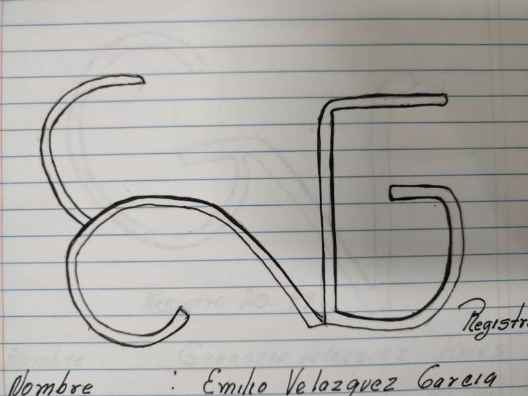 Registr
Nombre : Emilio Velazquez Garcia